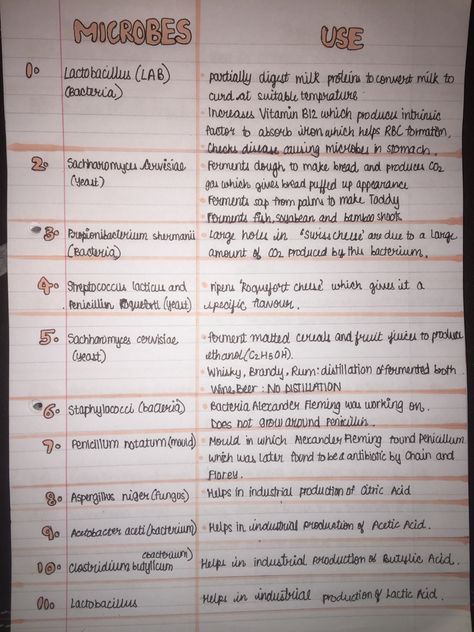 MICROBES USE
1. Lactobacillus (LAB)
(Bacteria)
• partially digest milk proteins to convert milk to
curd at suitable temperature
• Increases Vitamin B12 which produces intrinsic
factor to absorb iron which helps RBC formation.
• Checks disease causing microbes in stomach.
2. Sachharomyces Cervisiae
(yeast)
• Ferments dough to make bread and produces CO2
gas which gives bread puffed up appearance
• Ferments sap from palms to make Toddy
• Ferments fish, soyabean and bamboo shoots
3. Propionibacterium shermanii
(Bacteria)
• Large holes in 'Swiss cheese' are due to a large
amount of CO2 produced by this bacterium.
4. Streptococcus lacticus and
Penicillin Roqueforti (yeast)
• ripens 'Roquefort cheese' which gives it a
specific flavour.
5. Sachharomyces cervisiae
(yeast)
• ferment malted cereals and fruit juices to produce
ethanol (C2H5OH).
• Whisky, Brandy, Rum: distillation of fermented broth
• Wine, Beer: NO DISTILLATION
6. Staphylococci (bacteria)
• Bacteria Alexander Fleming was working on.
Does not grow around Penicillin.
7. Penicillum notatum (mould)
• Mould in which Alexander Fleming found Penicillum
which was later found to be a antibiotic by Chain and
Florey.
8. Aspergillus niger (fungus)
• Helps in industrial production of Citric Acid
9. Acetobacter aceti (bacterium)
• Helps in industrial production of Acetic Acid.
10. Clostridium butyllcum
(bacterium)
Helps in industrial production of Butylic Acid.
11. Lactobacillus
Helps in industrial production of Lactic Acid.